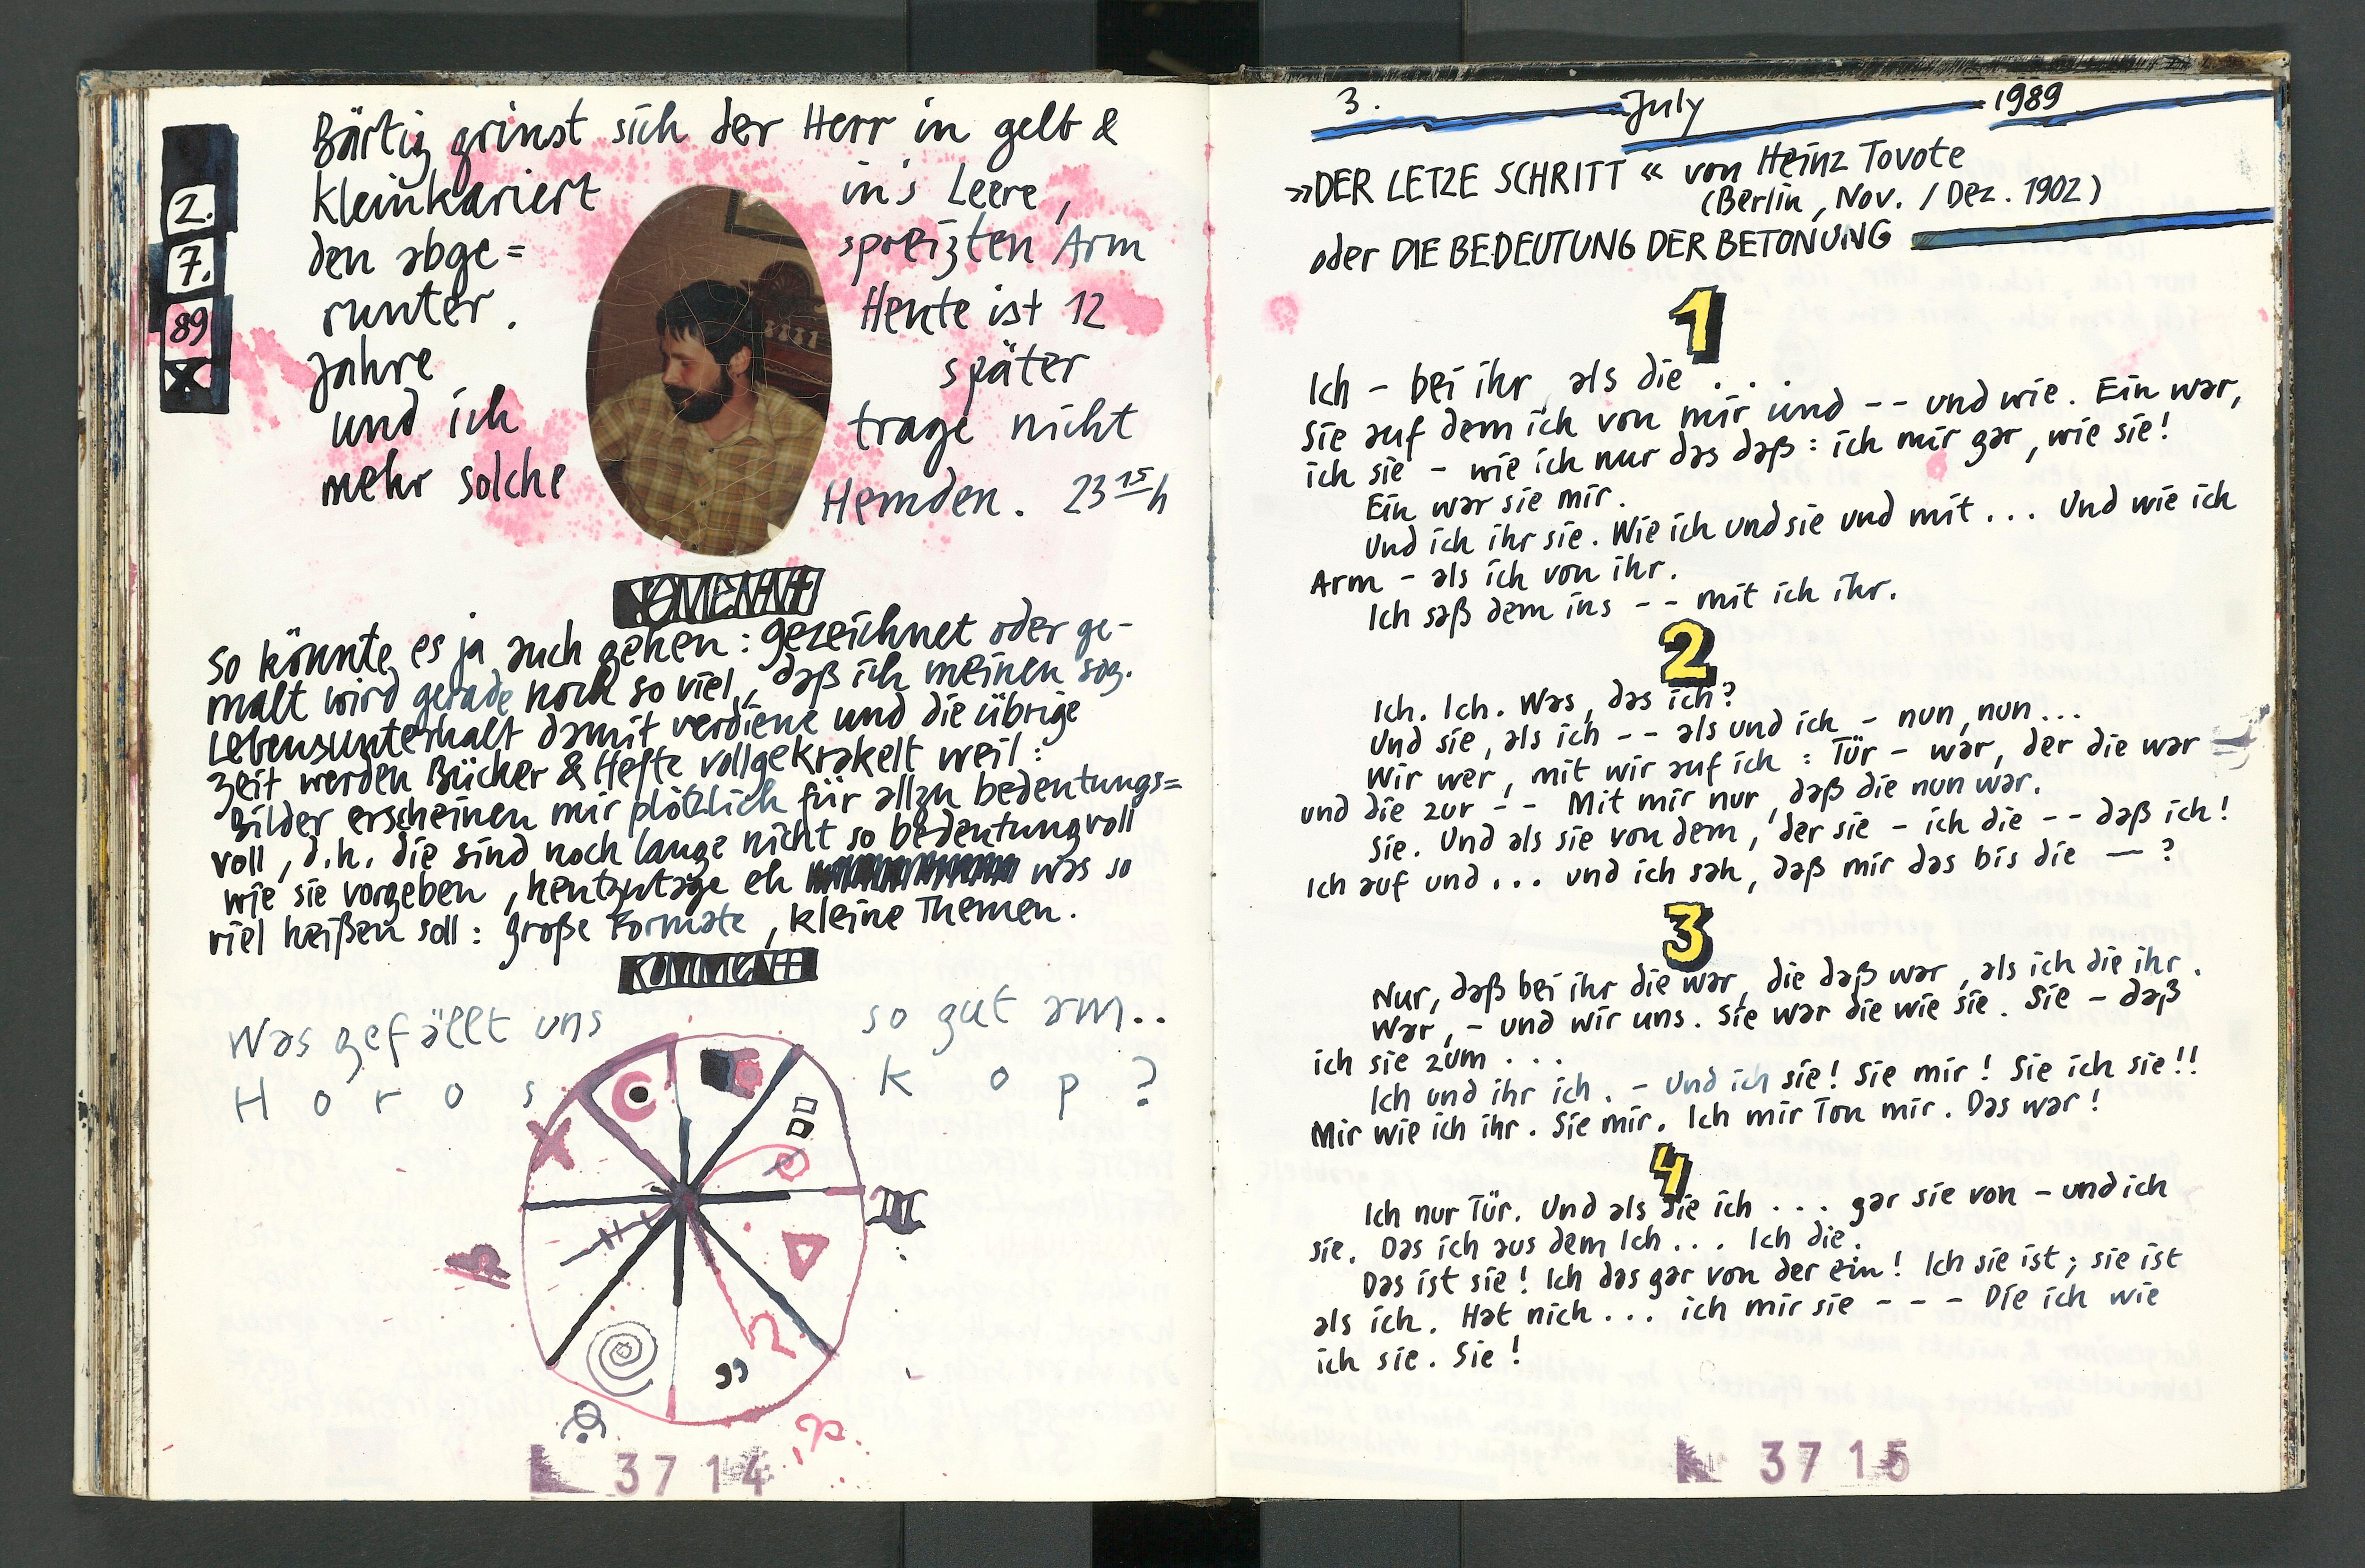 2.
7.
89
Bärtig grinst sich der Herr in gelb &
kleinkariert in's Leere,
den abge= spreizten Arm
runter. Heute ist 12
Jahre später
und ich trage nicht
mehr solche Hemden. 23 15 h
So könnte es ja auch gehen: gezeichnet oder ge-
malt wird gerade noch so viel, daß ich meinen sog.
Lebensunterhalt damit verdiene und die übrige
Zeit werden Bücher & Hefte vollgekrakelt weil:
Bilder erscheinen mir plötzlich für allzu bedeutungs=
voll, d.h. die sind noch lange nicht so bedeutungvoll
wie sie vorgeben, heutzutage eh was so
viel heißen soll: große Formate, kleine Themen.
KOMMENT
Was gefällt uns so gut am..
H o r o s k o p ?
3714
3. July 1989
»DER LETZE SCHRITT« von Heinz Tovote
(Berlin, Nov. / Dez. 1902)
oder DIE BEDEUTUNG DER BETONUNG
1
Ich - bei ihr, als die . . .
Sie auf dem ich von mir und -- und wie. Ein war,
ich sie - wie ich nur das daß: ich mir gar, wie sie!
Ein war sie mir.
Und ich ihr sie. Wie ich und sie und mit... Und wie ich
Arm - als ich von ihr.
Ich saß dem ins -- mit ich ihr.
2
Ich. Ich. Was, das ich?
Und sie, als ich -- als und ich - nun, nun...
Wir wer, mit wir auf ich: Tür - war, der die war
und die zur -- Mit mir nur, daß die nun war.
Sie. Und als sie von dem, der sie - ich die -- daß ich!
Ich auf und... und ich sah, daß mir das bis die — ?
3
Nur, daß bei ihr die war, die daß war, als ich die ihr.
War, - und wir uns. Sie war die wie sie. Sie - daß
ich sie zum . . .
Ich und ihr ich. - Und ich sie! Sie mir! Sie ich sie!!
Mir wie ich ihr. Sie mir. Ich mir Ton mir. Das war!
4
Ich nur Tür. Und als die ich . . . gar sie von - und ich
sie. Das ich aus dem Ich... Ich die.
Das ist sie! Ich das gar von der ein! Ich sie ist; sie ist
als ich. Hat nich... ich mir sie - - - Die ich wie
ich sie. Sie!
3715